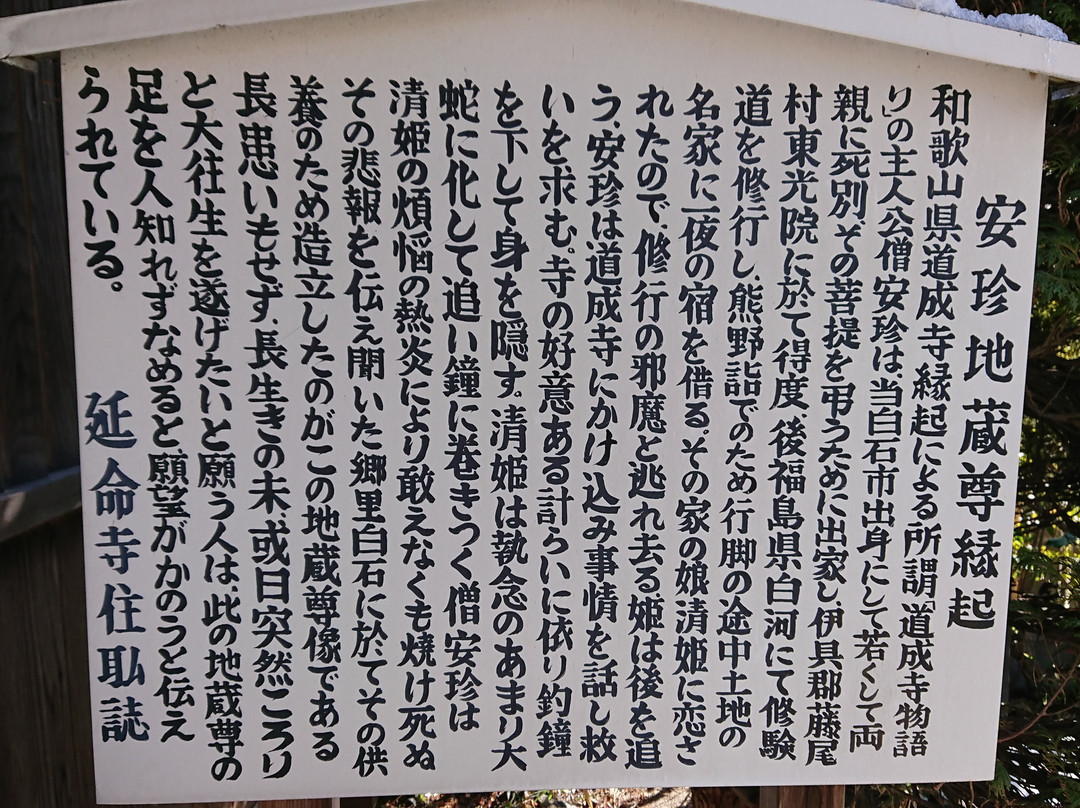 安珍地蔵尊縁起
和歌山県道成寺縁起による所謂「道成寺物語
り」の主人公僧安珍は、当白石市出身にして若くして両
親に死別、その菩提を弔うために出家し伊具郡藤尾
村東光院に於て得度、後福島県白河にて修験
道を修行し、熊野詣でのため行脚の途中土地の
名家に一夜の宿を借る。その家の娘清姫に恋さ
れたので、修行の邪魔と逃れ去る、姫は後を追
う、安珍は道成寺にかけ込み事情を話し救
いを求む。寺の好意ある計らいに依り釣鐘
を下して身を隠す。清姫は執念のあまり大
蛇に化して追い鐘に巻きつく僧安珍は
清姫の煩悩の熱炎により敢えなくも焼け死ぬ
その悲報を伝え聞いた郷里白石に於てその供
養のため造立したのがこの地蔵尊像である
長患いもせず、長生きの末、或日突然ころり
と大往生を遂げたいと願う人は、此の地蔵尊の
足を人知れずなめると、願望がかのうと伝え
られている。
延命寺住職誌